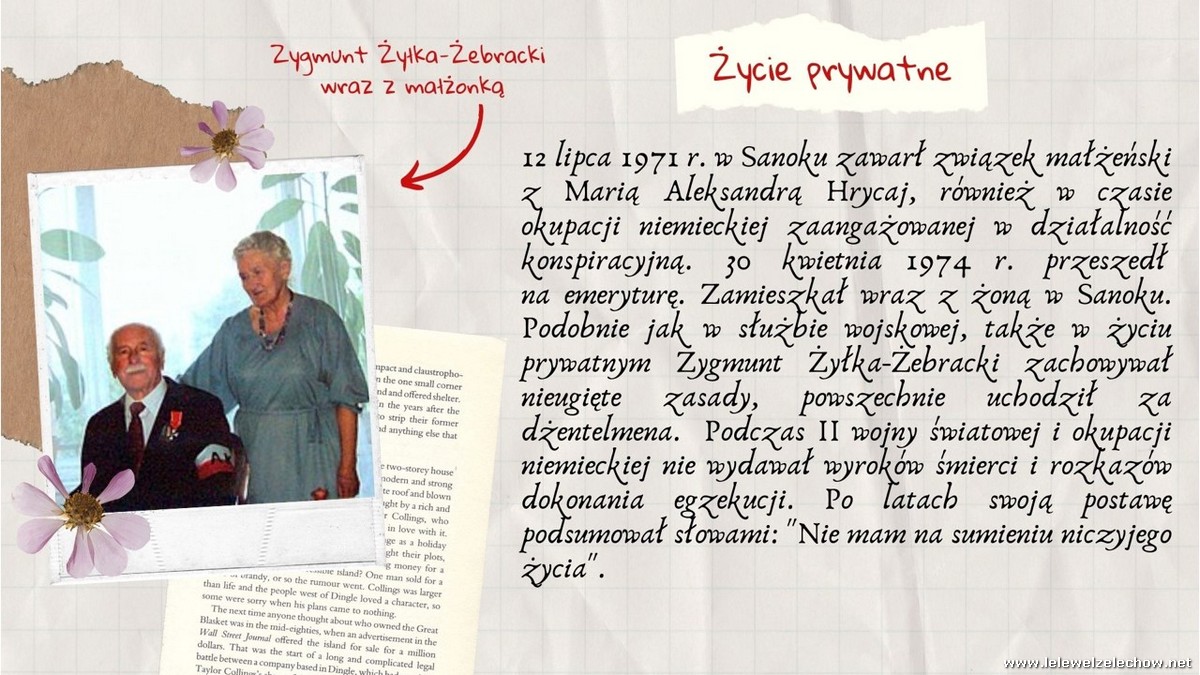 Zygmunt Żyłka-Żebracki
wraz z małżonką
Życie prywatne
12 lipca 1971 r. w Sanoku zawarł związek małżeński
z Marią Aleksandrą Hrycaj, również w czasie
okupacji niemieckiej zaangażowanej w działalność
konspiracyjną. 30 kwietnia 1974 r. przeszedł
na emeryturę. Zamieszkał wraz z żoną w Sanoku.
Podobnie jak w służbie wojskowej, także w życiu
prywatnym Zygmunt Żyłka-Żebracki zachowywał
nieugięte zasady, powszechnie uchodził za
dżentelmena. Podczas II wojny światowej i okupacji
niemieckiej nie wydawał wyroków śmierci i rozkazów
dokonania egzekucji. Po latach swoją postawę
podsumował słowami: "Nie mam na sumieniu niczyjego
życia".
A.K
and claustropho-
the one small corner
and offered shelter.
the years after the
strip their former
anything else that
two-storey house
modern and strong
roof and blown
by a rich and
Collings, who
in love with it.
as a holiday
their plots,
money for a
island? One man sold for a
brandy, or so the rumour went. Collings was larger
than life and the people west of Dingle loved a character, so
some were sorry when his plans came to nothing.
The next time anyone thought about who owned the Great
Blasket was in the mid-eighties, when an advertisement in the
Wall Street Journal offered the island for sale for a million
dollars. That was the start of a long and complicated legal
battle between a company based in Dingle, which
Taylor Collings's
www.lelewelzelechow.net